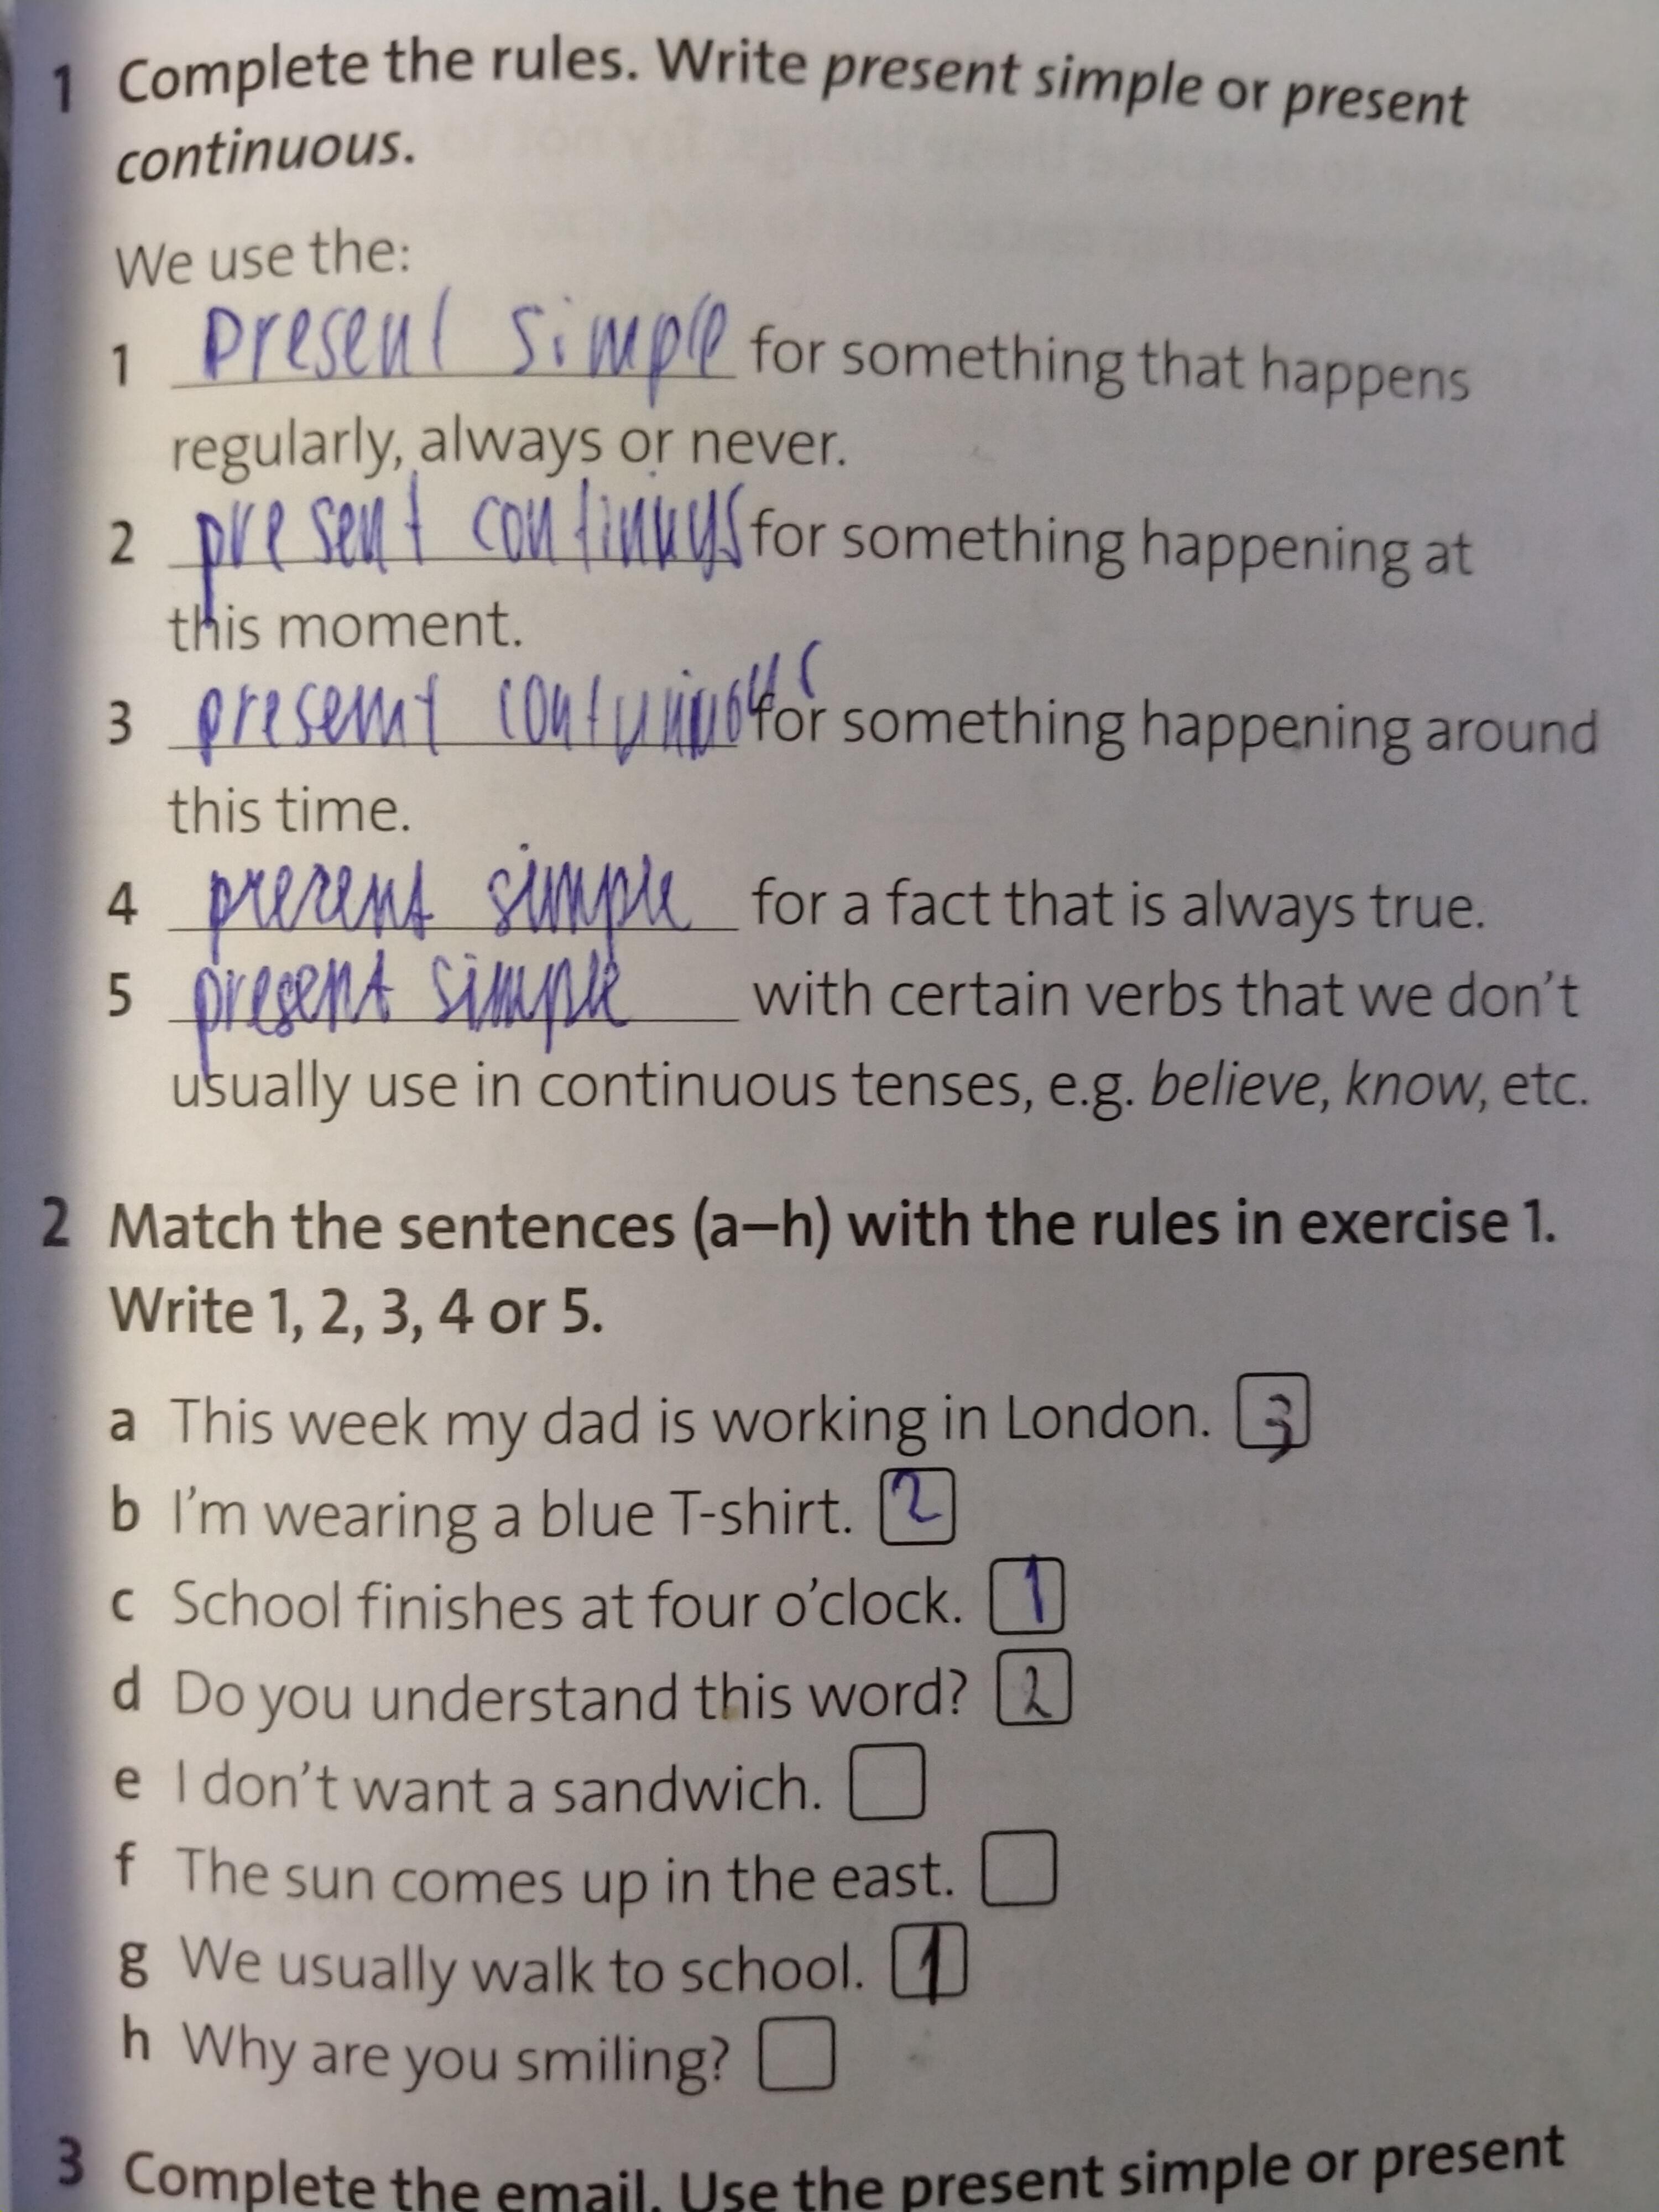 1 Complete the rules. Write present simple or present
continuous.
We use the:
1 present simple for something that happens
regularly, always or never.
2 present continuys for something happening at
this moment.
3 present for something happening around
this time.
4 present simple for a fact that is always true.
5 present simple with certain verbs that we don't
usually use in continuous tenses, e.g. believe, know, etc.
2 Match the sentences (a–h) with the rules in exercise 1.
Write 1, 2, 3, 4 or 5.
a This week my dad is working in London. 3
b I'm wearing a blue T-shirt. 2
c School finishes at four o'clock. 1
d Do you understand this word? 2
e I don't want a sandwich.
f The sun comes up in the east.
g We usually walk to school. 1
h Why are you smiling?
3 Complete the email. Use the present simple or present